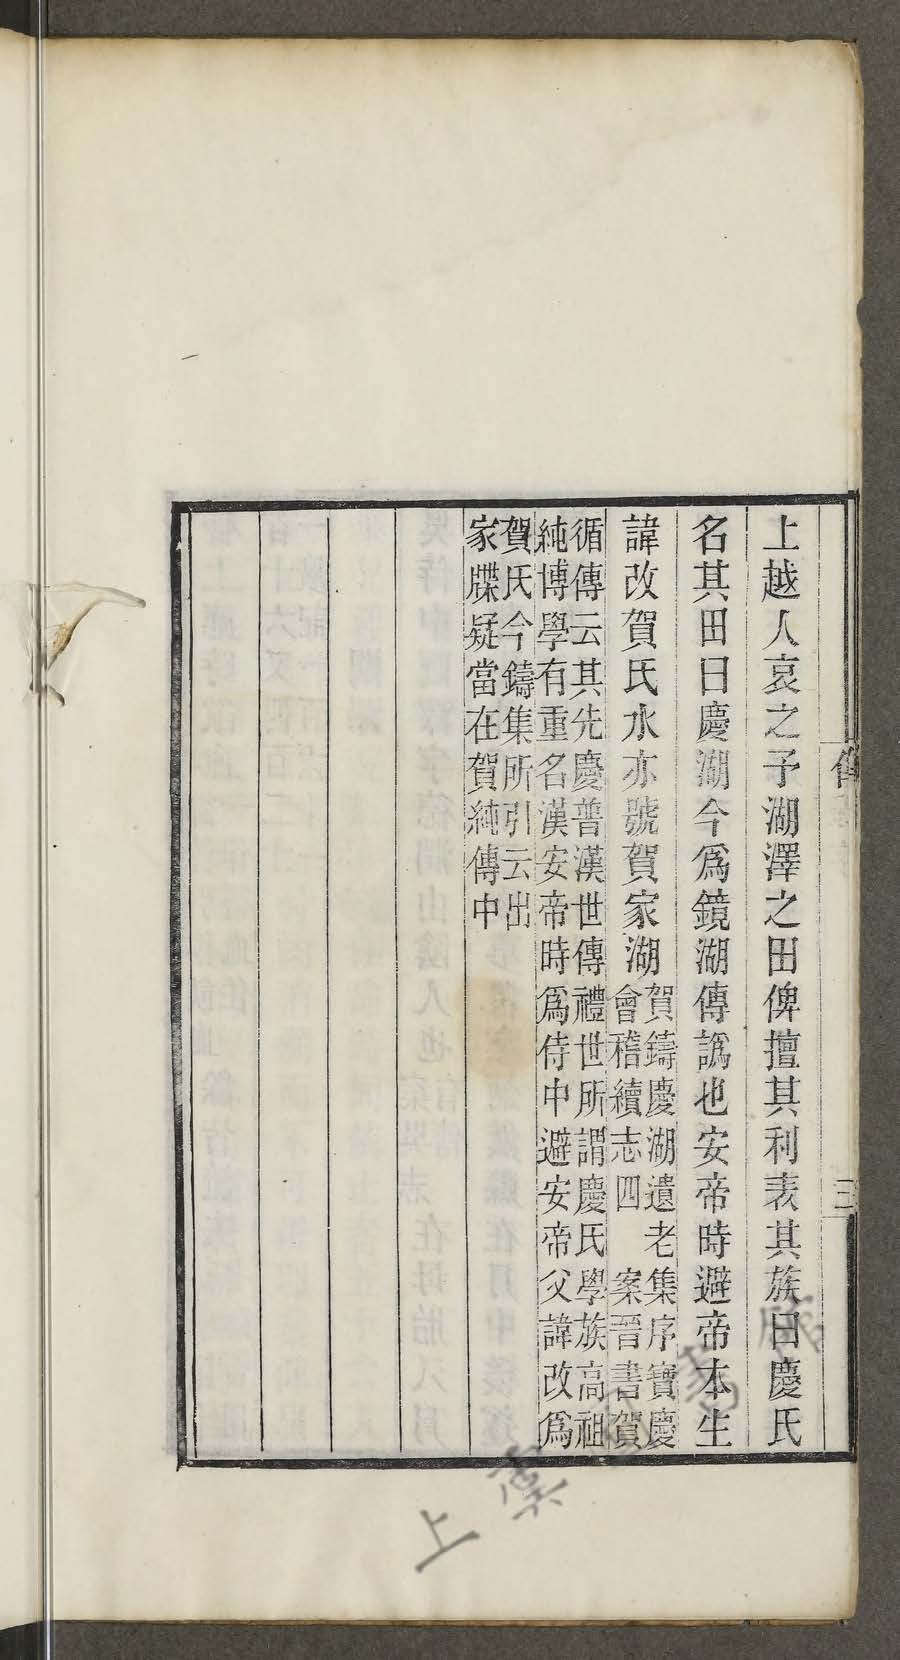 上越人哀之予湖澤之田俾擅其利表其族曰慶氏
名其田曰慶湖今爲鏡湖傳譌也安帝時避帝本生
諱改賀氏水亦號賀家湖
賀鑄慶湖遺老集序寶慶
會稽續志四　案晉書賀
循傳云其先慶普漢世傳禮世所謂慶氏學族高祖
純博學有重名漢安帝時爲侍中避安帝父諱改爲
賀氏今鑄集所引云出
家牒疑當在賀純傳中
三
上虞